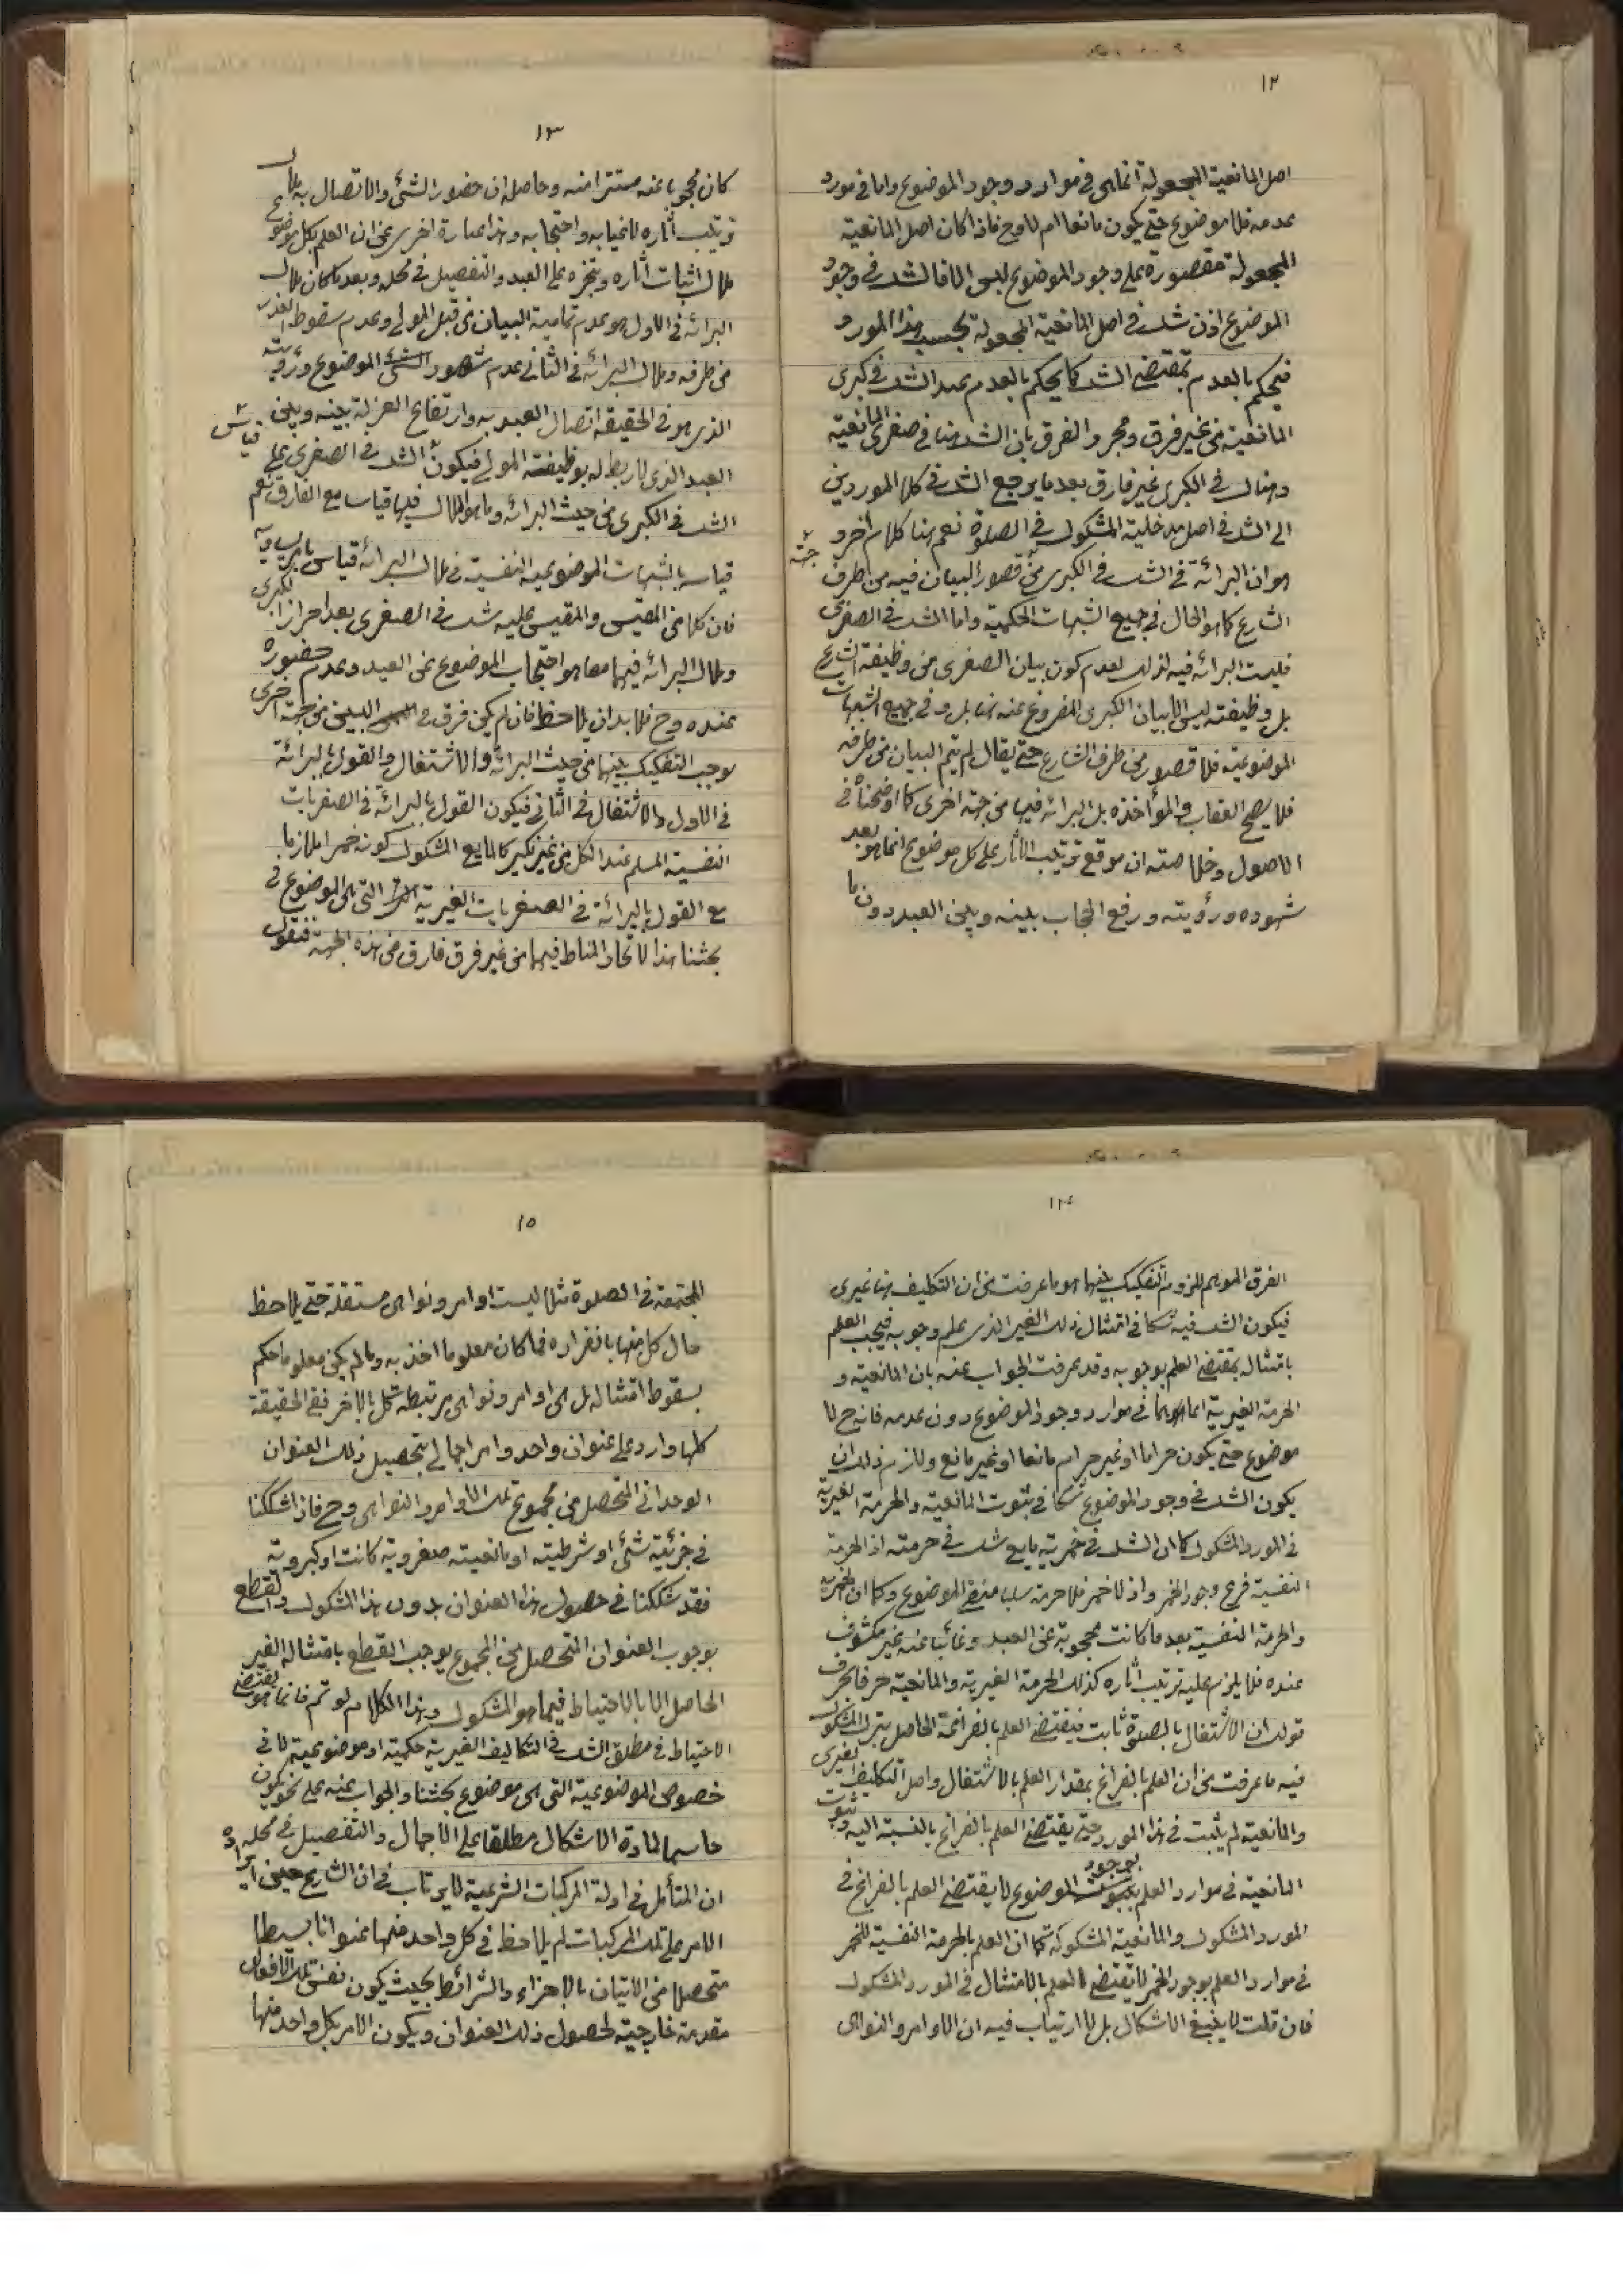 ١٢
اصل المانعية المجعولة انما هى فى موارد وجود الموضوع واما فى مورد
عدمه فلا موضوع حتى يكون مانعا ام لا وح فاذا كان اصل المانعية
المجعولة مقصورة على وجود الموضوع ليس الا فالشك فى وجود
الموضوع اذن شك فى اصل المانعية المجعولة بحسب هذا المورد
فيحكم بالعدم بمقتضى الشك كما يحكم بالعدم عند الشك فى كبرى
المانعية من غير فرق ومجرد الفرق بان الشك هنا فى صغرى المانعية
وهناك فى الكبرى غير فارق بعد ما يرجع الشك فى كلا الموردين
الى الشك فى اصل مدخلية المشكوك فى الصلوة نعم هنا كلام اخر و
هو ان البرائة فى الشك فى الكبرى من جهة قصور البيان فيه من طرف
الشارع كما هو الحال فى جميع الشبهات الحكمية واما الشك فى الصغرى
فليست البرائه فيه لذلك لعدم كون بيان الصغرى من وظيفة الشارع
بل وظيفته ليس الا بيان الكبرى المفروغ عنه هنا بل و فى جميع الشبهات
الموضوعية فلا قصور من طرف الشارع حتى يقال لم يتم البيان من طرفه
فلا يصح العقاب والمؤاخذه بل البرائه فيها من جهة اخرى كما اوضحناه فى
الاصول وخلاصته ان موقع ترتيب الآثار على كل موضوع انما هو بعد
شهوده ورؤيته ورفع الحجاب بينه وبين العبد دون ما
١٣
كان محجوبا عنه مستترا منه وحاصله ان حضور الشئ والاتصال به ملاك
ترتيب آثاره لا غيابه واحتجابه وهذا عبارة اخرى من ان العلم بكل موضوع
ملاك اثبات آثاره وتنجزه على العبد والتفصيل فى محله وبعد ما كان ملاك
البرائه فى الاول هو عدم تمامية البيان من قبل المولى وعدم سقوط العذر
من طرفه وملاك البرائه فى الثانى عدم شهود الموضوع ورؤيته
الذى هو فى الحقيقة اتصال العبد به وارتفاع العزلة بينه وبين
العبد الذى لا ربط له بوظيفة المولى فيكون قياس الشك فى الصغرى على
الشك فى الكبرى من حيث البرائه وما هو الملاك فيها قياسا مع الفارق نعم
قياسه بالشبهات الموضوعية النفسية فى ملاك البرائه قياس
فان كلا من المقيس والمقيس عليه شك فى الصغرى بعد احراز الكبرى
وملاك البرائه فيهما معا هو احتجاب الموضوع عن العبد وعدم حضوره
عنده وح فلا بد ان يلاحظ فان لم يكن فرق فى البين من جهة اخرى
يوجب التفكيك بينهما من حيث البرائه والاشتغال والقول بالبرائة
فى الاول والاشتغال فى الثانى فيكون القول بالبرائة فى الصغريات
النفسية المسلم عند الكل من غير نكير كالمايع المشكوك كونه خمرا ملازما
مع القول بالبرائة فى الصغريات الغيرية التى هى الموضوع فى
بحثنا هذا لاتحاد المناط فيهما من غير فرق فارق من هذه الجهة فنقول
١٤
الفرق الموهم للزوم التفكيك بينهما هو ما عرفت من ان التكليف هنا غيرى
فيكون الشك فيه شكا فى امتثال ذلك الغير الذى علم وجوبه فيجب العلم
بامتثاله بمقتضى العلم بوجوبه وقد عرفت الجواب عنه بان المانعية و
الحرمة الغيرية انما هما فى موارد وجود الموضوع دون عدمه فانه ح لا
موضوع حتى يكون حراما او غير حرام مانعا او غير مانع ولازم ذلك ان
يكون الشك فى وجود الموضوع شكا فى ثبوت المانعية والحرمة الغيرية
فى المورد المشكوك كما ان الشك فى خمرية مايع شك فى حرمته اذ الحرمة
النفسية فرع وجود الخمر واذ لا خمر فلا حرمة سلبا منتفى الموضوع وكما ان الخمرية
والحرمة النفسية بعد ما كانت محجوبة عن العبد وغائبا عنه غير مكشوف
عنده فلا يلزم عليه ترتيب آثاره كذلك الحرمة الغيرية والمانعية حرفا بحرف
قولك ان الاشتغال بالصلوة ثابت فيقتضى العلم بالفراغ الحاصل بترك المشكوك
فيه ما عرفت من ان العلم بالفراغ بمقدار العلم بالاشتغال واصل التكليف الغيرى
والمانعية لم يثبت فى هذا المورد حتى يقتضى العلم بالفراغ بالنسبة اليه وثبوت
المانعية فى موارد العلم بوجود الموضوع لا يقتضى العلم بالفراغ فى
المورد المشكوك والمانعية المشكوكة كما ان العلم بالحرمة النفسية للخمر
فى موارد العلم بوجود الخمر لا يقتضى العلم بالامتثال فى المورد المشكوك
فان قلت لا ينبغى الاشكال بل لا ارتياب فيه ان الاوامر والنواهى
١٥
المجتمعة فى الصلوة مثلا ليست اوامر ونواهى مستقلة حتى يلاحظ
حال كل منها بانفراده فما كان معلوما اخذ به وما لم يكن معلوما حكم
بسقوط امتثاله بل هى اوامر ونواهى مرتبطة كل بالاخر ففى الحقيقة
كلها وارد على عنوان واحد وامر اجمالى بتحصيل ذلك العنوان
الوحدانى المتحصل من مجموع تلك الاوامر والنواهى وح فاذا شككنا
فى جزئية شئ او شرطيته او مانعيته صغروية كانت او كبروية
فقد شككنا فى حصول هذا العنوان بدون هذا المشكوك والقطع
بوجوب العنوان المتحصل من المجموع يوجب القطع بامتثاله الغير
الحاصل الا بالاحتياط فيما هو المشكوك وهذا الكلام لو تم فانما هو يقتضى
الاحتياط فى مطلق الشك فى التكاليف الغيرية حكمية او موضوعية لا فى
خصوص الموضوعية التى هى موضوع بحثنا والجواب عنه على نحو يكون
حاسما لمادة الاشكال مطلقا على الاجمال والتفصيل فى محله
ان المتأمل فى ادلة المركبات الشرعية لا يرتاب فى ان الشارع حين ايراده
الامر على تلك المركبات لم يلاحظ فى كل واحد منها عنوانا بسيطا
متحصلا من الاتيان بالاجزاء والشرائط بحيث يكون نفس تلك الافعال
مقدمة خارجية لحصول ذلك العنوان ويكون الامر بكل واحد منها